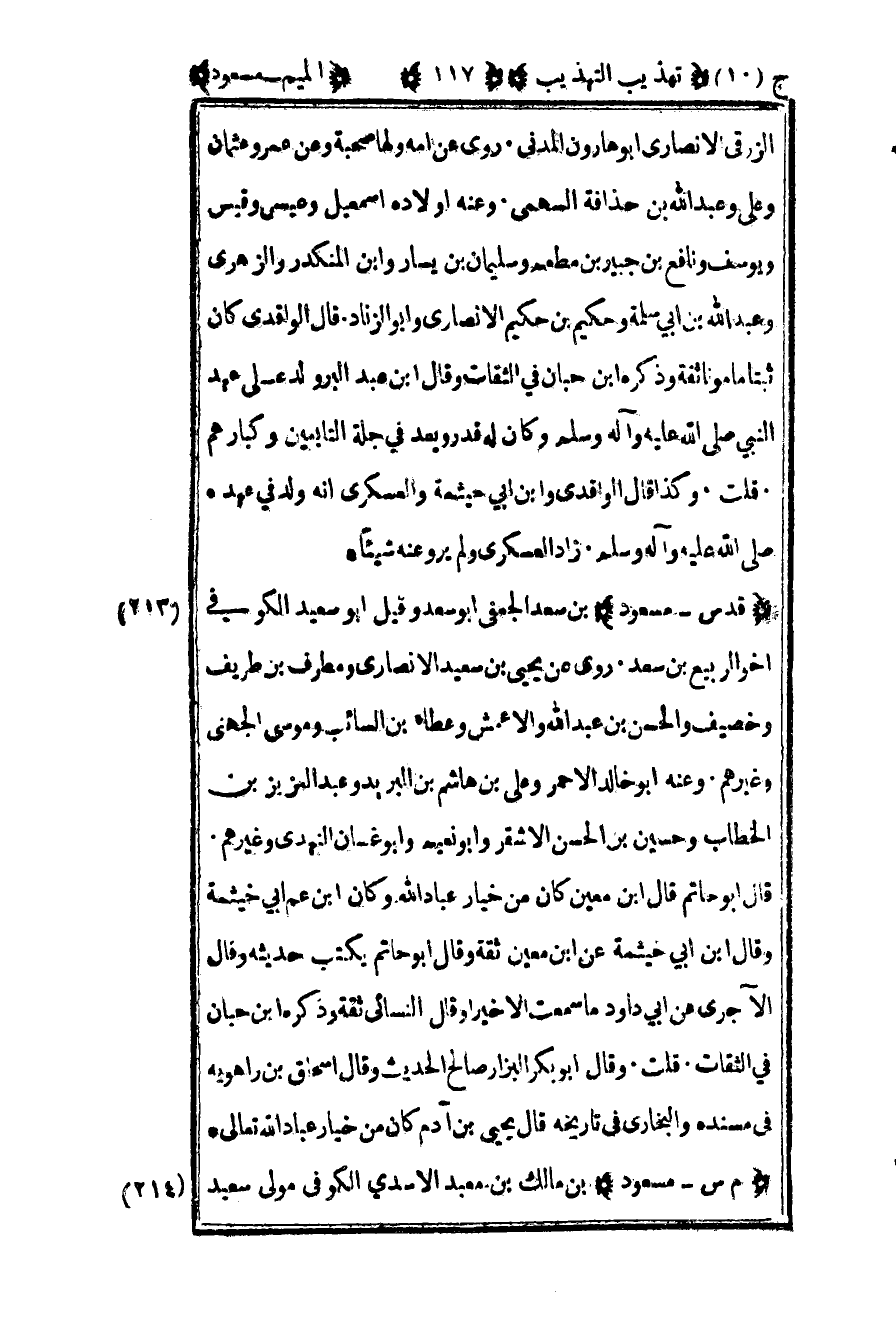 ج (١٠) ﴿ تهذيب التهذيب ﴾ ﴿ ١١٧ ﴾ ﴿ الميم - مسعود ﴾
الزرقي الانصارى ابوهارون المدنى · روى عن امه ولها صحبة وعن عمر وعثمان
وعلى وعبدالله بن حذافة السهمى · وعنه اولاده اسمعيل وعيسى وقيس
ويوسف ونافع بن جبير بن مطعم وسليمان بن يسار وابن المنكدر والزهرى
وعبدالله بن ابي سلمة وحكيم بن حكيم الانصارى وابو الزناد · قال الواقدى كان
ثبتا مامونا ثقة وذكره ابن حبان في الثقات وقال ابن عبد البر ولد على عهد
النبي صلى الله عليه وآله وسلم وكان له قدر ويعد في جلة التابعين وكبارهم
· قلت · وكذا قال الواقدى وابن ابي خيثمة والعسكرى انه ولد في عهده
صلى الله عليه وآله وسلم · زاد العسكرى ولم يرو عنه شيئا *
﴿ قد س - مسعود ﴾ بن سعد الجعفى ابو سعد وقيل ابو سعيد الكوفي (٢١٣)
اخو الربيع بن سعد · روى عن يحيى بن سعيد الانصارى ومطرف بن طريف
وخصيف والحسن بن عبدالله والاعمش وعطاء بن السائب وموسى الجهنى
وغيرهم · وعنه ابو خالد الاحمر وعلى بن هاشم بن البريد وعبد العزيز بن
الخطاب وحسين بن الحسن الاشقر وابونعيم وابوغسان النهدى وغيرهم ·
قال ابوحاتم قال ابن معين كان من خيار عباد الله وكان ابن عم ابي خيثمة
وقال ابن ابي خيثمة عن ابن معين ثقة وقال ابوحاتم يكتب حديثه وقال
الآجرى عن ابي داود ما سمعت الا خيرا وقال النسائى ثقة وذكره ابن حبان
في الثقات · قلت · وقال ابوبكر البزار صالح الحديث وقال اسحاق بن راهويه
فى مسنده والبخارى فى تاريخه قال يحيى بن آدم كان من خيار عباد الله تعالى *
﴿ م س - مسعود ﴾ بن مالك بن معبد الاسدي الكوفى مولى سعيد (٢١٤)